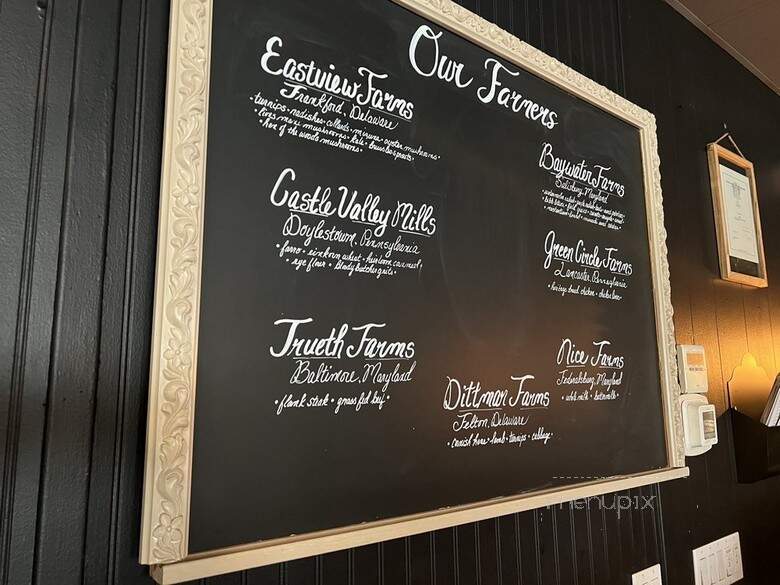 Our Farmers
Eastview Farms
Frankford, Delaware
• turnips • radishes • collards • mizuna • oyster mushrooms •
lions mane mushrooms • kale • brussles sprouts •
• hen of the woods mushrooms •
Castle Valley Mills
Doylestown, Pennsylvania
• farro • einkorn wheat • heirloom cornmeal •
• rye flour • bloody butcher grits •
Trueth Farms
Baltimore, Maryland
• flank steak • grass fed beef •
Baywater Farms
Salisbury, Maryland
Green Circle Farms
Lancaster, Pennsylvania
• heritage breed chicken • chicken livers •
Nice Farms
Federalsburg, Maryland
• whole milk • buttermilk •
Dittman Farms
Felton, Delaware
• cornish hens • lamb • turnips • cabbage
menupix